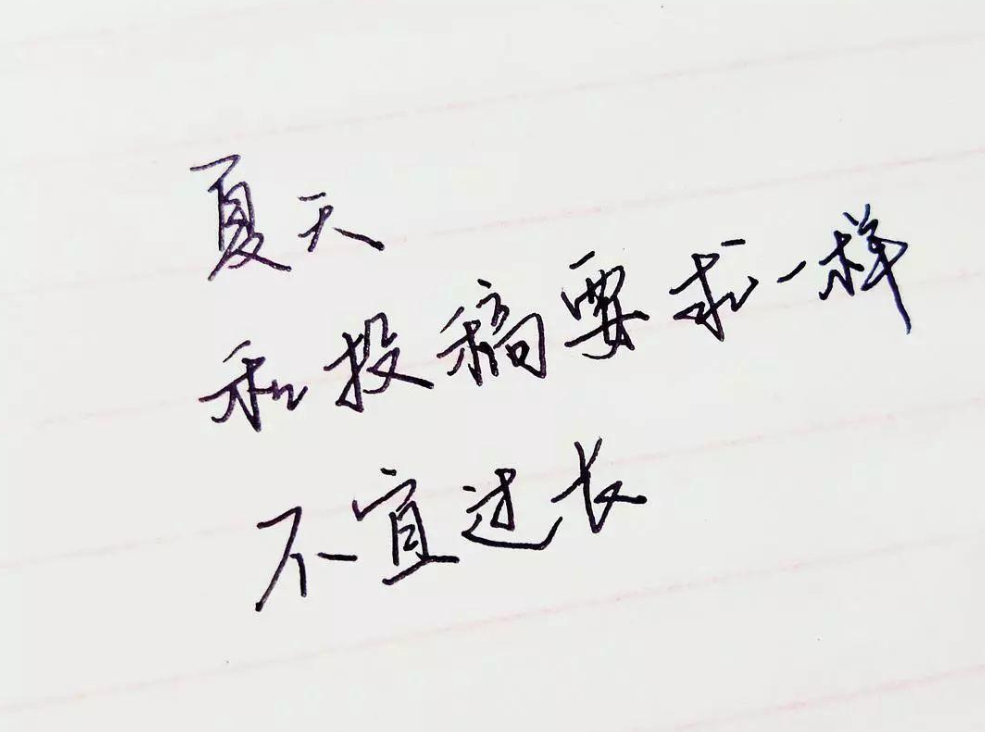 夏天
和投稿要求一样
不宜过长